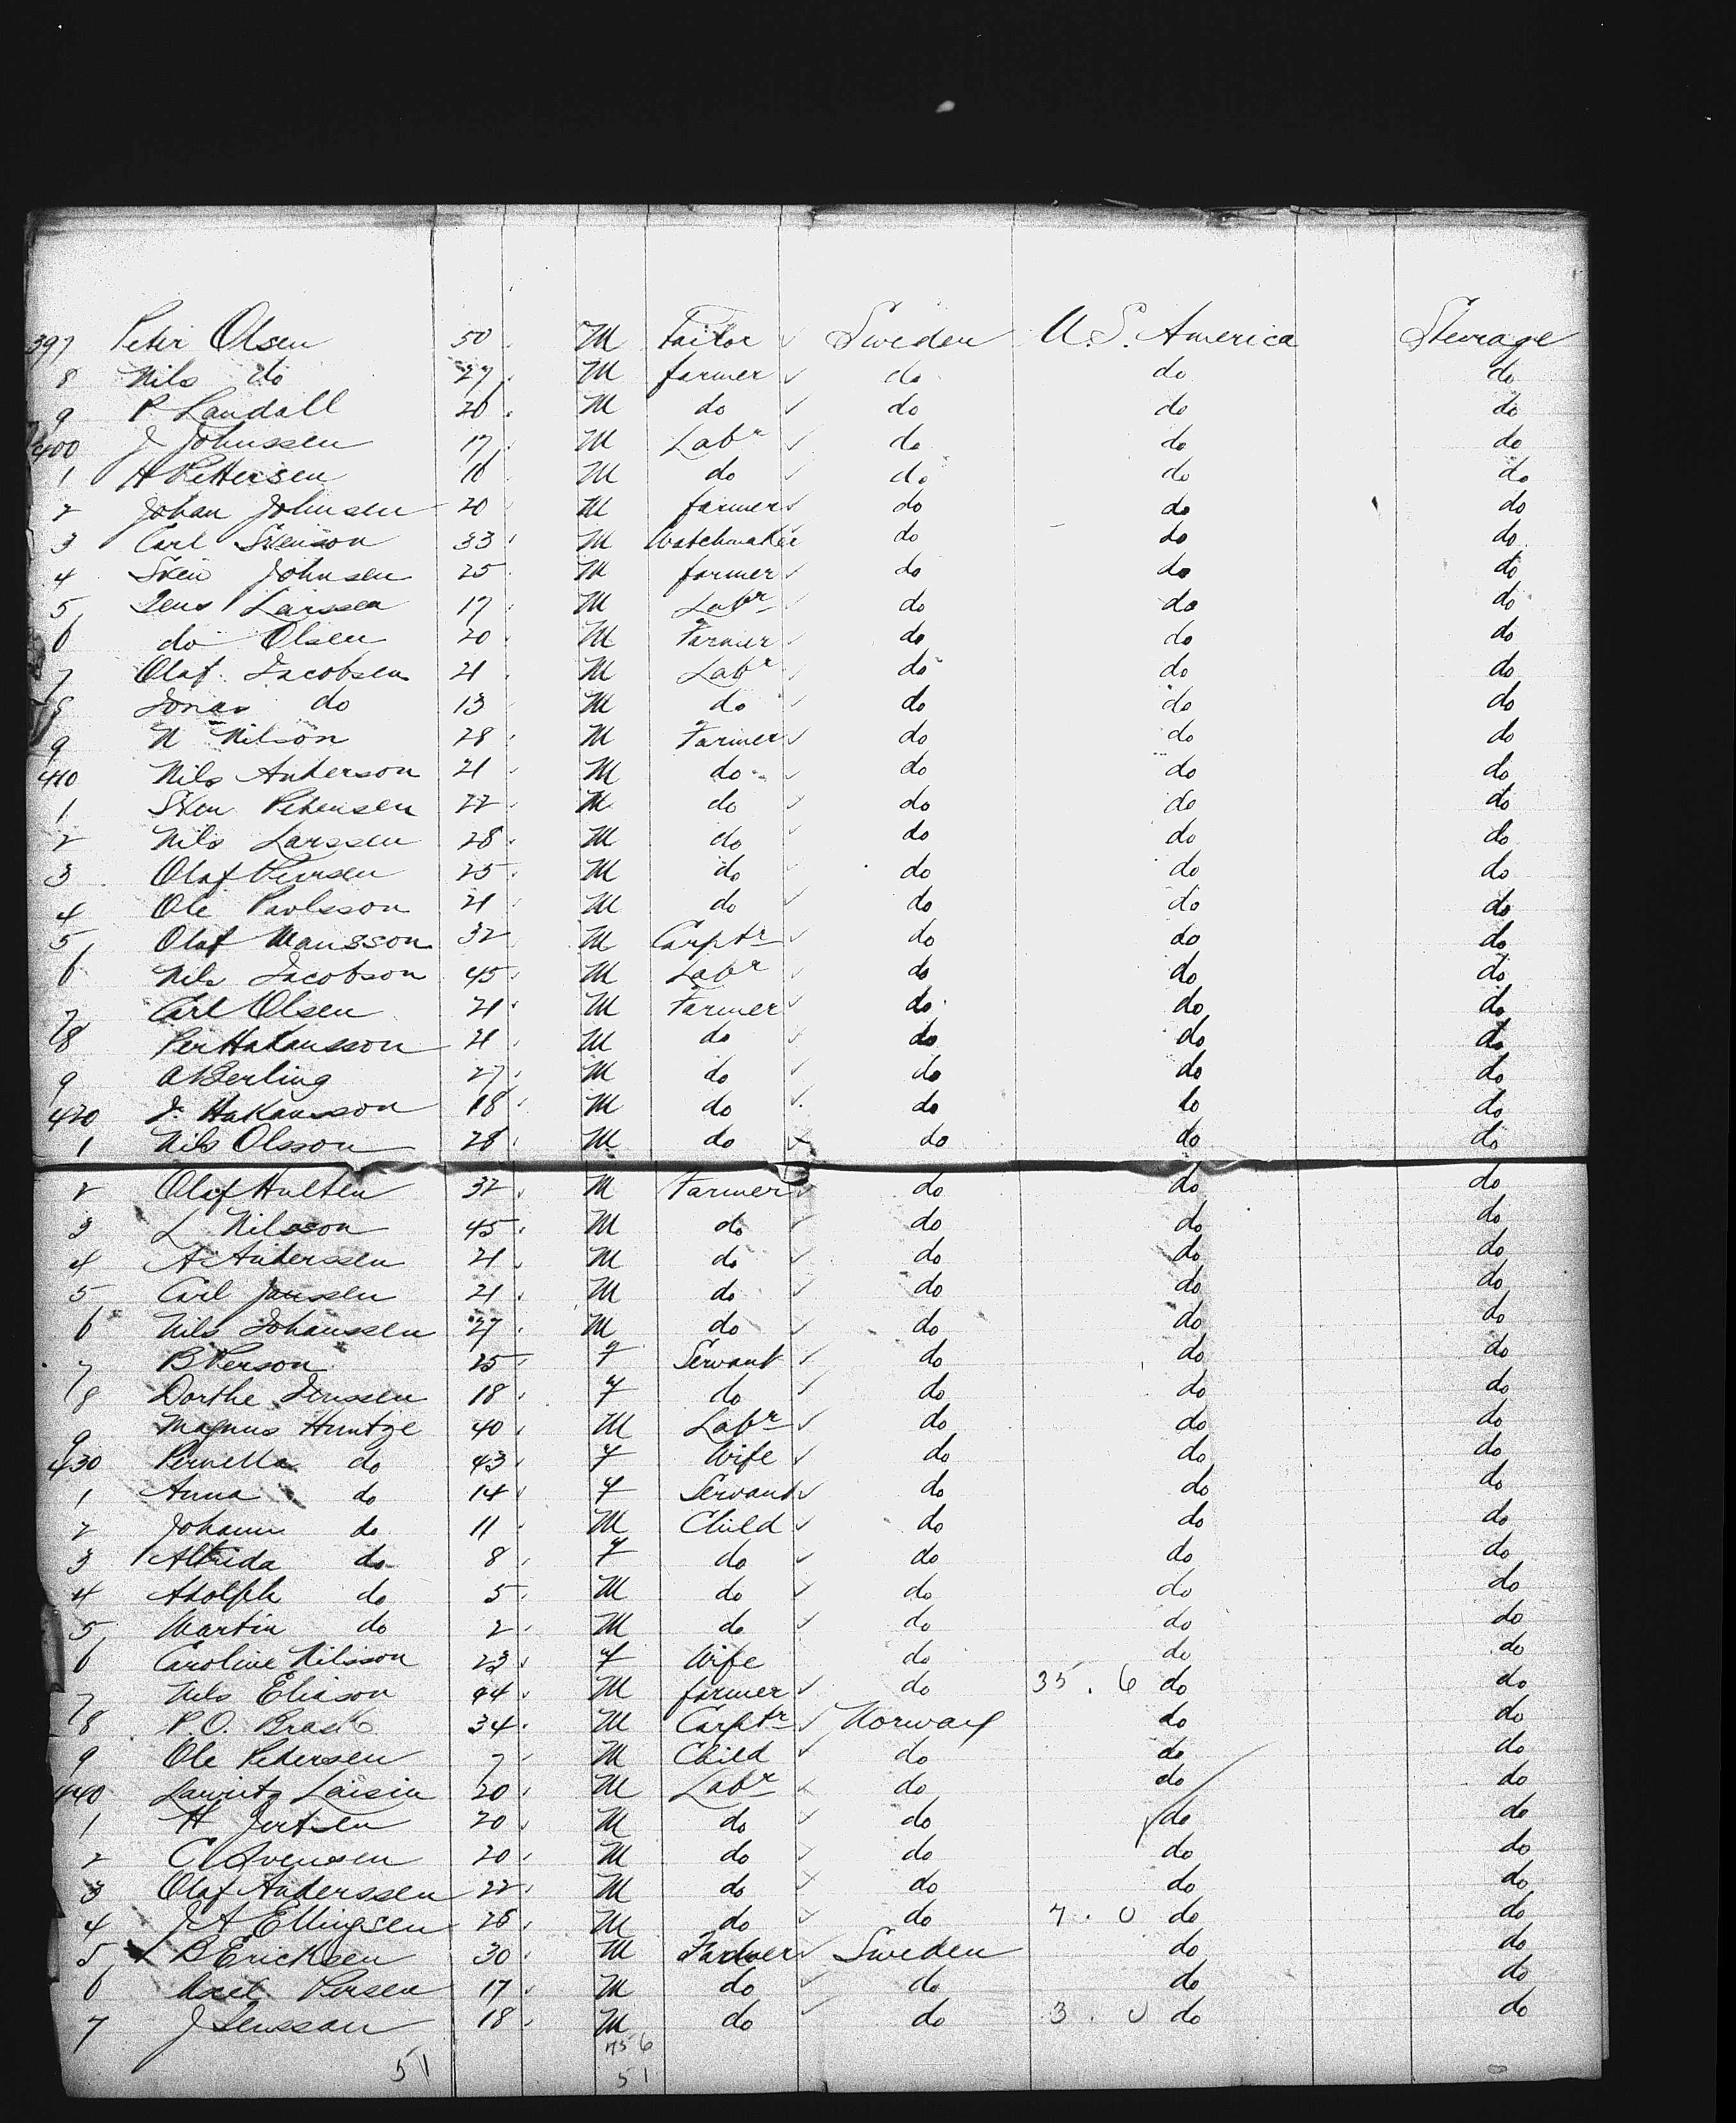 397 Peter Olsen 50 M Tailor Sweden U.S. America Steerage
8 Nils do 27 M farmer do do do
9 P Landall 20 M do do do do
400 J Johnssen 17 M Labr do do do
1 H Pettersen 16 M do do do do
2 Johan Johnsen 20 M farmer do do do
3 Carl Svenson 33 M Watchmaker do do do
4 Sven Johnsen 25 M farmer do do do
5 Jens Larssen 17 M Labr do do do
6 do Olsen 20 M Farmer do do do
7 Olaf Jacobsen 21 M Labr do do do
8 Jonas do 13 M do do do do
9 N Nilson 28 M Farmer do do do
410 Nils Anderson 21 M do do do do
1 Sven Petersen 22 M do do do do
2 Nils Larssen 28 M do do do do
3 Olaf 25 M do do do do
4 Ole Paulsson 21 M do do do do
5 Olaf Mansson 32 M Carptr do do do
6 Nils Jacobson 45 M Labr do do do
7 Carl Olsen 21 M Farmer do do do
8 Per Hakansson 21 M do do do do
9 A Berling 27 M do do do do
420 J. Hakansson 18 M do do do do
1 Nils Olsson 28 M do do do do
2 Olof Hulten 32 M Farmer do do do
3 L Nilsson 45 M do do do do
4 A Anderssen 21 M do do do do
5 Carl Janssen 21 M do do do do
6 Nils Johanssen 27 M do do do do
7 B Person 25 F Servant do do do
8 Dorthe Jenssen 18 F do do do do
9 Magnus Huntze 40 M Labr do do do
430 Pernella do 43 F Wife do do do
1 Anna do 14 F Servant do do do
2 Johann do 11 M Child do do do
3 Alfrida do 8 F do do do do
4 Adolph do 5 M do do do do
5 Martin do 2 M do do do do
6 Caroline Nilsson 23 F Wife do do do
7 Nils Eliason 44 M farmer do 35 . 6 do do
8 P.O. 34 M Carptr Norway do do
9 Ole Pedersen 7 M Child do do do
440 Lauritz 20 M Labr do do do
1 H 20 M do do do do
2 C Svensen 20 M do do do do
3 Olaf Anderssen 22 M do do do do
4 J A Ellingsen 26 M do do 7 . 0 do do
5 B Ericksen 30 M Farmer Sweden do do
6 Axel Persen 17 M do do do do
7 J Jensson 18 M do do 3 . 0 do do
456
51 51